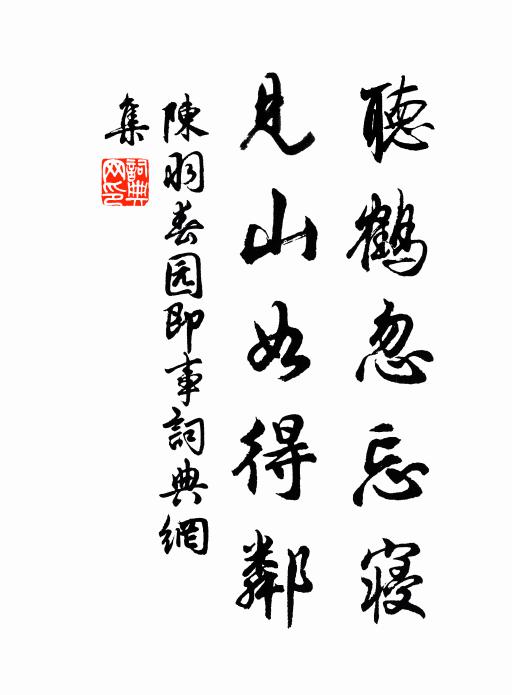 聽鶴忽忘寢
見山如得鄰
陳羽春园即事詞典網
集
詞典網印